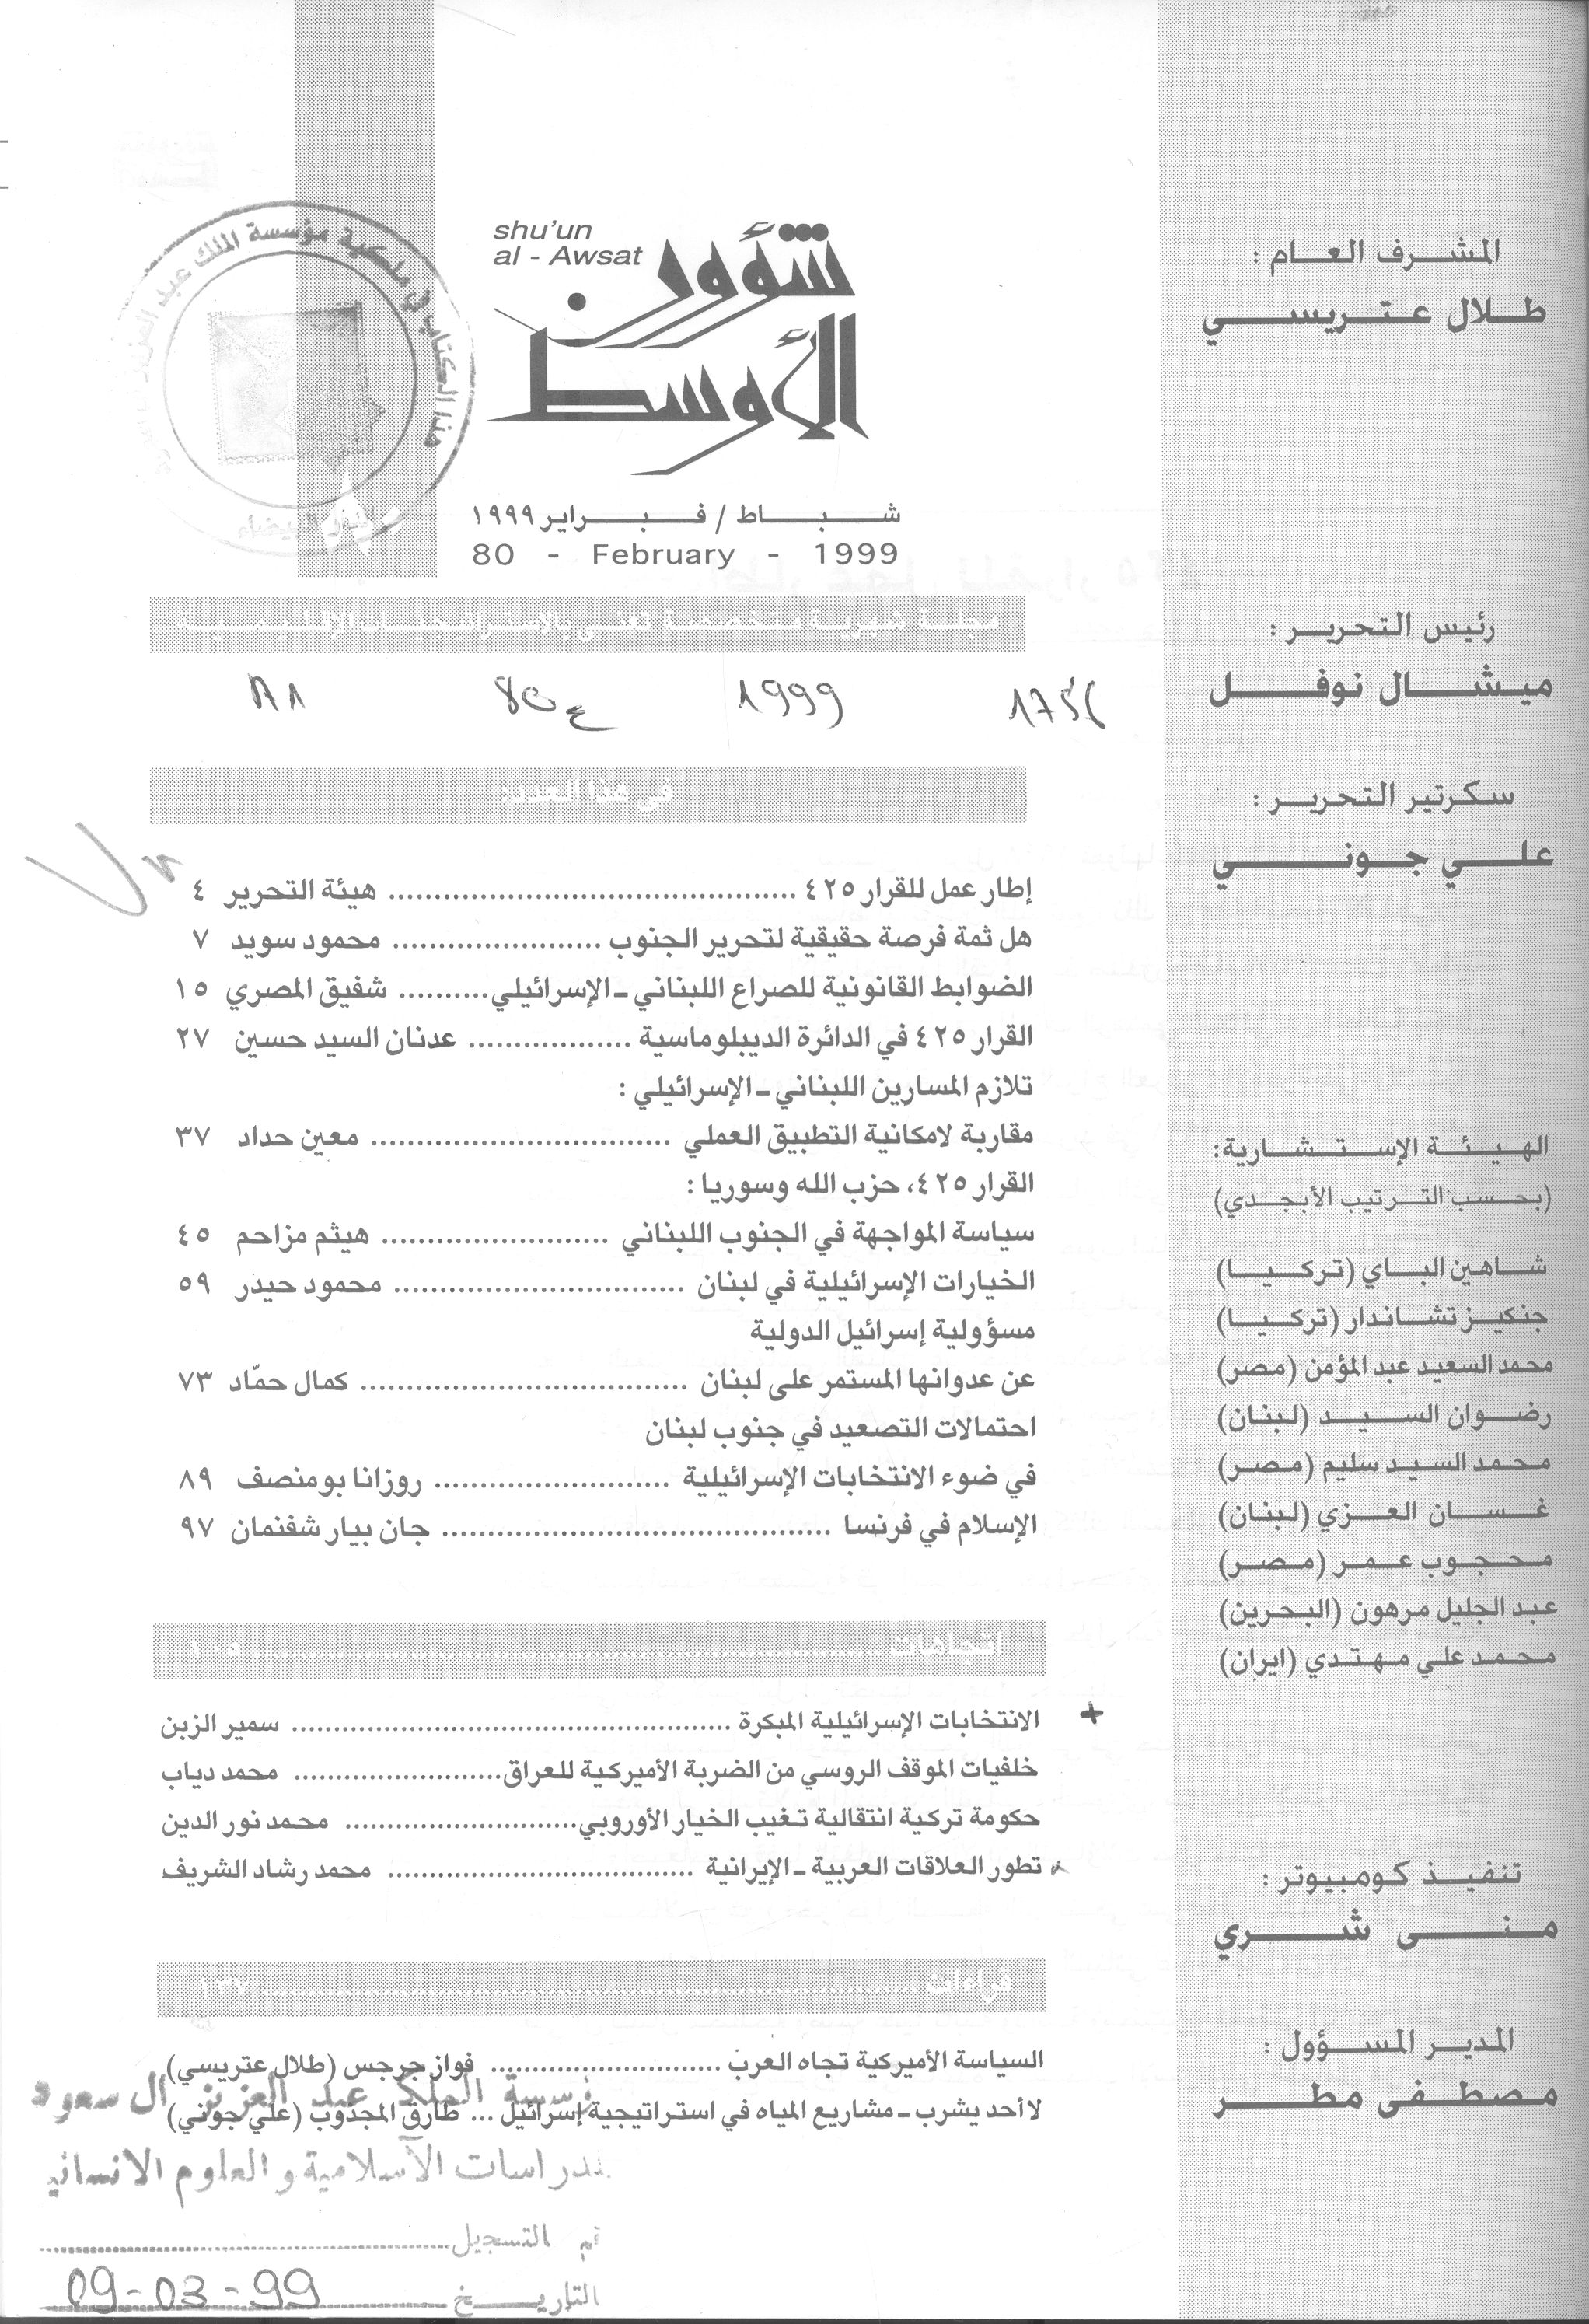 المشرف العام :
طلال عتريسي
رئيس التحرير :
ميشال نوفل
سكرتير التحرير :
علي جوني
الهيئة الإستشارية:
(بحسب الترتيب الأبجدي)
شاهين الباي (تركيا)
جنكيز تشاندار (تركيا)
محمد السعيد عبد المؤمن (مصر)
رضوان السيد (لبنان)
محمد السيد سليم (مصر)
غسان العزي (لبنان)
محجوب عمر (مصر)
عبد الجليل مرهون (البحرين)
محمد علي مهتدي (ايران)
تنفيذ كومبيوتر :
منى شري
المدير المسؤول :
مصطفى مطر
shu'un
al - Awsat
شؤون
الأوسط
شباط / فبراير ١٩٩٩
80 - February - 1999
هذا الكتاب في ملكية مؤسسة الملك عبد العزيز
الدار البيضاء
مجلة شهرية متخصصة تعنى بالاستراتيجيات الإقليمية
1999 80ع
في هذا العدد:
إطار عمل للقرار ٤٢٥ ........ هيئة التحرير ٤
هل ثمة فرصة حقيقية لتحرير الجنوب ........ محمود سويد ٧
الضوابط القانونية للصراع اللبناني ـ الإسرائيلي.......... شفيق المصري ١٥
القرار ٤٢٥ في الدائرة الديبلوماسية ........ عدنان السيد حسين ٢٧
تلازم المسارين اللبناني ـ الإسرائيلي :
مقاربة لامكانية التطبيق العملي ........ معين حداد ٣٧
القرار ٤٢٥، حزب الله وسوريا :
سياسة المواجهة في الجنوب اللبناني ........ هيثم مزاحم ٤٥
الخيارات الإسرائيلية في لبنان ........ محمود حيدر ٥٩
مسؤولية إسرائيل الدولية
عن عدوانها المستمر على لبنان ........ كمال حمّاد ٧٣
احتمالات التصعيد في جنوب لبنان
في ضوء الانتخابات الإسرائيلية ........ روزانا بومنصف ٨٩
الإسلام في فرنسا ........ جان بيار شفنمان ٩٧
اتجاهات ........ ١٠٥
+ الانتخابات الإسرائيلية المبكرة ........ سمير الزبن
خلفيات الموقف الروسي من الضربة الأميركية للعراق........ محمد دياب
حكومة تركية انتقالية تغيب الخيار الأوروبي........ محمد نور الدين
تطور العلاقات العربية ـ الإيرانية ........ محمد رشاد الشريف
قراءات ........ ١٣٧
السياسة الأميركية تجاه العرب ........ فواز جرجس (طلال عتريسي)
لا أحد يشرب ـ مشاريع المياه في استراتيجية إسرائيل ... طارق المجذوب (علي جوني)
الملك عبد العزيز آل سعود
للدراسات الآسلامية و العلوم الانساني
التسجيل
التاريخ 09-03-99